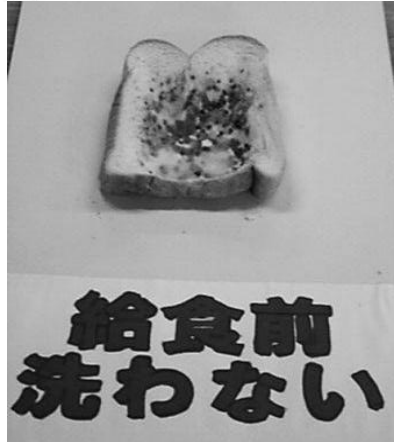 給食前
洗わない